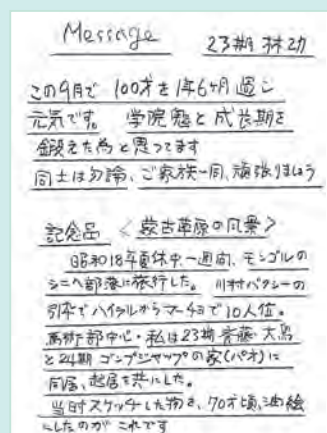 Message
23期 林功
この9月で 100才を1年6ヶ月過ごし
元気です。 学院魂と成長期を
鍛えた為と思ってます
同士は勿論、ご家族一同、頑張りましょう
記念品 <蒙古草原の風景>
昭和18年夏休中一週間、モンゴルの
シニヘ部落に旅行した。 川村バクシーの
引卒でハイラルからマーチョで10人位。
馬術部中心・私は23期 斉藤 大島
と24期 ゴンブジャップの家(パオ)に
同居、起居を共にした。
当日スケッチした物を、70才頃、油絵
にしたのが これです